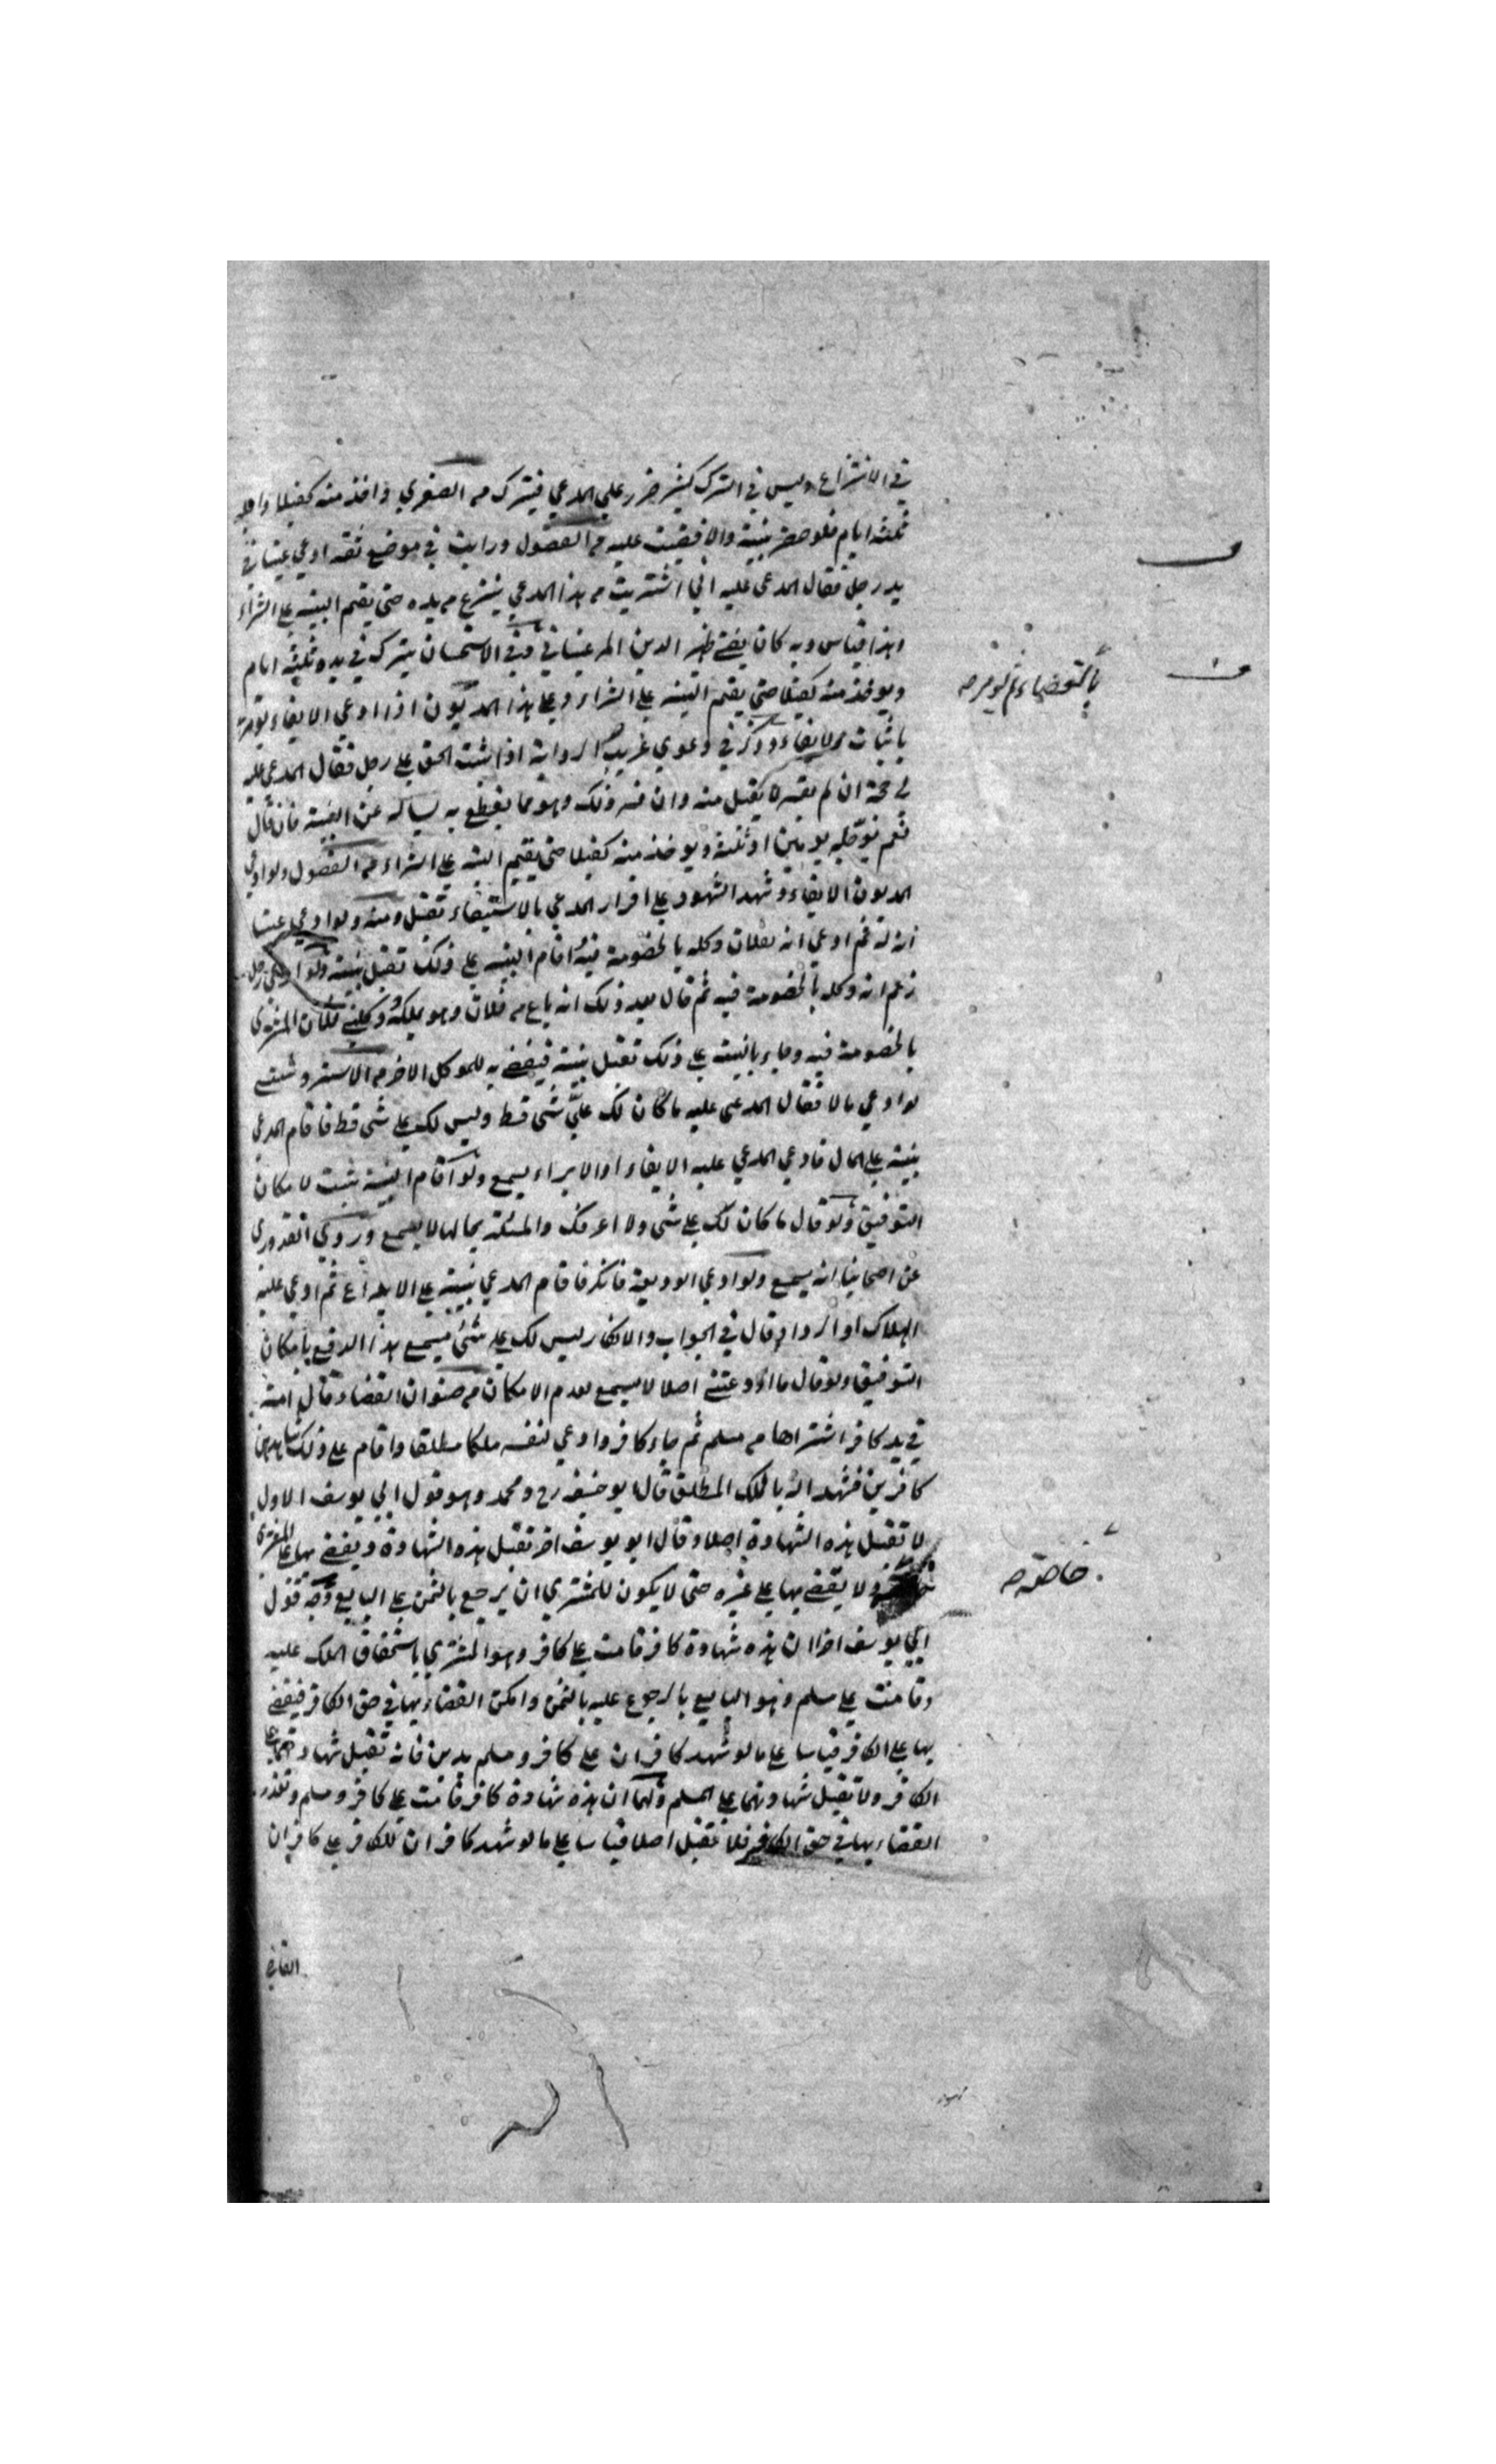 في الانتزاع وليس في الترك كثير ضرر علي المدعي فيترك مه الصغري واخذ منه كفيلا واجله
ثلثة ايام فلو حضر بنيته والا قضيت عليه مه الفصول ورايت في موضع ثقه ادعي عينا في
يد رجل فقال المدعي عليه اني اشتريت مه هذا المدعي ينزع مه يده حتي يقيم البينه علي الشراء
وهذا قياس وبه كان يفتي ظهير الدين المرغيناني وفي الاستحسان يترك في يده ثلثة ايام
ويوخذ منه كفيلا حتي يقيم البينه علي الشراء وعلي هذا المديون اذا ادعي الايفاء يؤمر
بالقضاء ثم يومر صح
باثبات الايفاء وذكر في دعوي غريب الرواية اذا ثبت الحق علي رجل فقال المدعي عليه
لي حجة ان لم يفسره لا يقبل منه وان فسر ذلك وهو مما يقطع به يساله عن البينة فان قال
نعم يؤجله يومين او ثلثة ويوخذ منه كفيلا حتي يقيم البينه علي الشراء مه الفصول ولو ادعي
المديون الايفاء وشهد الشهود علي اقرار المدعي بالاستيفاء تقبل ومنه ولو ادعي عينا
انه له ثم ادعي انه لفلان وكله بالخصومة فيه اقام البينه علي ذلك تقبل بينته ولو ادعي رجل
زعم انه وكله بالخصومة فيه ثم قال بعد ذلك انه باع مه فلان وهو يملكه وكلني فلان المشتري
بالخصومة فيه وجاء بالبينه علي ذلك تقبل بينته فيقضي به للموكل الاخر مه الاستروشني
لو ادعي مالا فقال المدعي عليه ما كان لك عليَّ شئ قط وليس لك علي شئ قط فاقام المدعي
بينته علي المال فادعي المدعي عليه الايفاء او الابراء يسمع ولو اقام البينة تثبت لامكان
التوفيق ولو قال ما كان لك علي شئ ولا اعرفك والمسئلة بحالها لا يسمع وروي القدوري
عن اصحابنا انه يسمع ولو ادعي الوديعة فانكر فاقام المدعي بينته علي الايداع ثم ادعي عليه
الهلاك او الرد او قال في الجواب والانكار ليس لك علي شئ يسمع هذا الدفع بامكان
التوفيق ولو قال ما اودعتني اصلا لا يسمع لعدم الامكان مه صنوان القضاء وقال امة
في يد كافر اشتراها مه مسلم ثم جاء كافر وادعي لنفسه ملكا مطلقا واقام علي ذلك شاهدين
كافرين فشهدا له بالملك المطلق قال ابو حنيفه رح ومحمد وهو قول ابي يوسف الاول
لا تقبل هذه الشهادة اصلا وقال ابو يوسف اخرا تقبل هذه الشهادة ويقضي بها علي المشتري
خاصة صح
ولا يقضي بها علي غيره حتي لا يكون للمشتري ان يرجع بالثمن علي البايع وجه قول
ابي يوسف اخرا ان هذه شهادة كافر قامت علي كافر وهو المشتري باستحقاق الملك عليه
وقامت علي مسلم وهو البايع بالرجوع عليه بالثمن وامكن القضاء بها في حق الكافر فيقضي
بها علي الكافر قياسا علي ما لو شهد كافران علي كافر ومسلم بدين فانه تقبل شهادتهما علي
الكافر ولا تقبل شهادتهما علي المسلم ولهما ان هذه شهادة كافر قامت علي كافر ومسلم وتعذر
القضاء بها في حق الكافر فلا تقبل اصلا قياسا علي ما لو شهد كافران للكافر علي كافر ان
القاضي